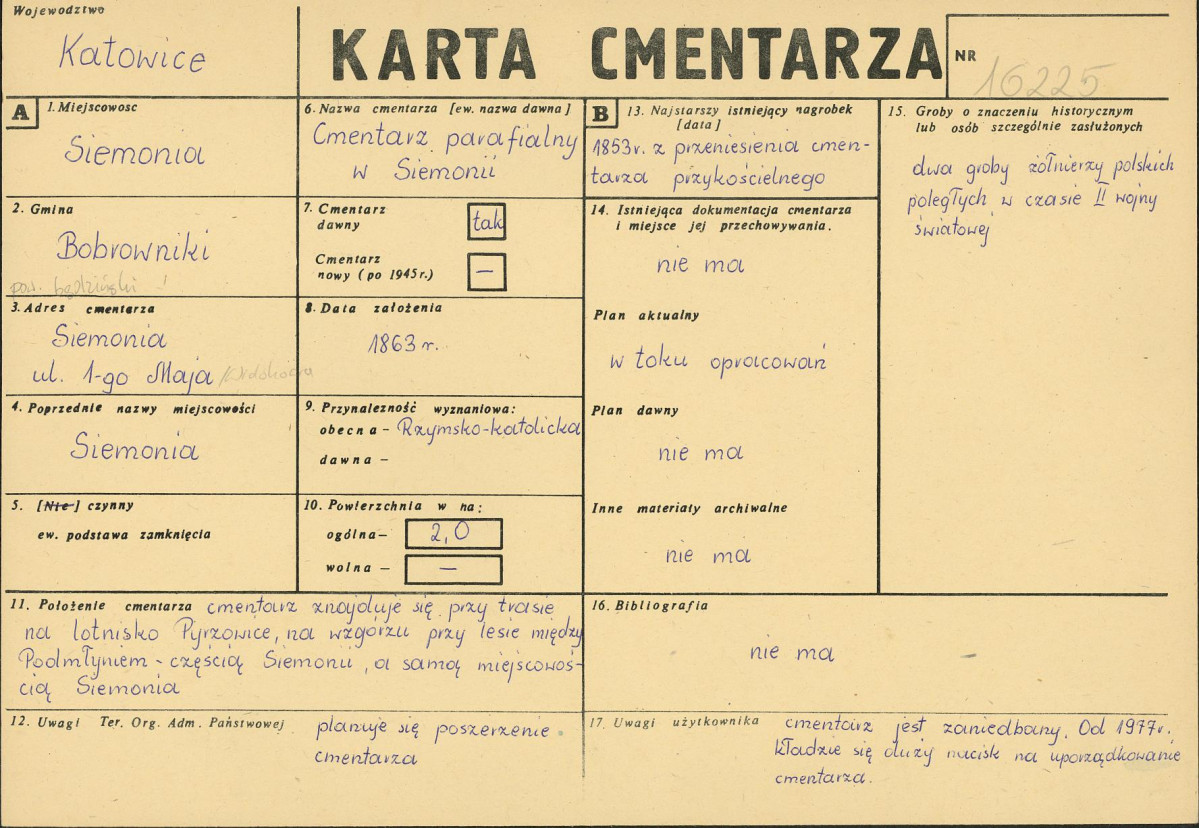 Wojewodztwo
Katowice
KARTA CMENTARZA
NR 16225
A
1. Miejscowosc
Siemonia
2. Gmina
Bobrowniki
pow. będziński
3. Adres cmentarza
Siemonia
ul. 1-go Maja
4. Poprzednie nazwy miejscowości
Siemonia
5. [Nie] czynny
ew. podstawa zamknięcia
6. Nazwa cmentarza [ew. nazwa dawna]
Cmentarz parafialny
w Siemonii
7. Cmentarz
dawny
tak
Cmentarz
nowy (po 1945 r.)
—
8. Data założenia
1863 r.
9. Przynalezność wyznaniowa:
obecna - Rzymsko-katolicka
dawna -
10. Powierzchnia w ha:
ogólna - 2,0
wolna - —
11. Położenie cmentarza cmentarz znajduje się przy trasie
na lotnisko Pyrzowice, na wzgórzu przy lesie między
Podmłyniem - częścią Siemonii, a samą miejscowoś-
cią Siemonia
12. Uwagi Ter. Org. Adm. Państwowej planuje się poszerzenie
cmentarza
B
13. Najstarszy istniejący nagrobek
[data]
1853 r. z przeniesienia cmen-
tarza przykościelnego
14. Istniejąca dokumentacja cmentarza
i miejsce jej przechowywania.
nie ma
Plan aktualny
w toku opracowań
Plan dawny
nie ma
Inne materiały archiwalne
nie ma
15. Groby o znaczeniu historycznym
lub osób szczególnie zasłużonych
dwa groby żołnierzy polskich
poległych w czasie II wojny
światowej
16. Bibliografia
nie ma
17. Uwagi użytkownika cmentarz jest zaniedbany. Od 1977 r.
kładzie się duży nacisk na uporządkowanie
cmentarza.